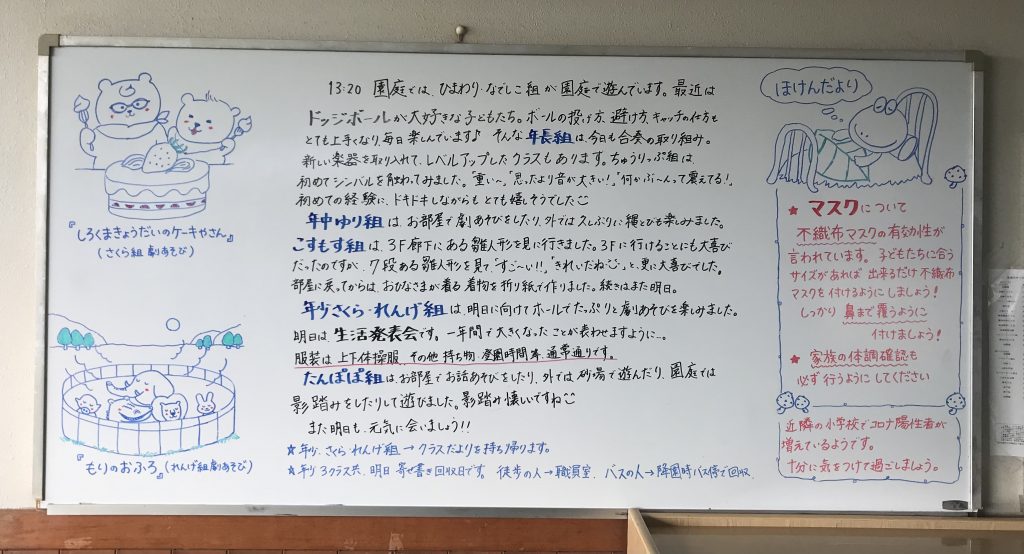 13:20 園庭では、ひまわり・なでしこ組が園庭で遊んでいます。最近は
ドッジボールが大好きな子どもたち。ボールの投げ方、避け方、キャッチの仕方も
とても上手くなり毎日楽しんでいます♪ そんな年長組は、今日も合奏の取り組み。
新しい楽器を取り入れて、レベルアップしたクラスもあります。ちゅうりっぷ組は
初めてシンバルを触わってみました。「重い〜。」「思ったより音が大きい!」「何かぶ〜んって震えてる!」
初めての経験に、ドキドキしながらもとても嬉しそうでした
年中ゆり組は、お部屋で劇あそびをしたり、外では久しぶりに縄とびも楽しみました。
こすもす組は、3F廊下にある雛人形を見に行きました。3Fに行けることにも大喜び
だったのですが、7段ある雛人形を見て、「すご〜い!!」「きれいだね」と、更に大喜びでした。
部屋に戻ってからは、おひなさまが着る着物を折り紙で作りました。続きはまた明日。
年少さくら・れんげ組は、明日に向けてホールでたっぷりと劇あそびを楽しみました。
明日は、生活発表会です。一年間で大きくなったことが表わせますように…。
服装は、上下体操服、その他持ち物・登園時間も、通常通りです。
たんぽぽ組は、お部屋でお話あそびをしたり、外では、砂場で遊んだり、園庭では
影踏みをしたりして遊びました。影踏み懐しいですね
また明日も、元気に会いましょう!!
☆年少、さくられんげ組→クラスだよりを持ち帰ります。
☆年少3クラス共、明日寄せ書き回収日です。徒歩の人→職員室、バスの人→降園時バス停で回収、
『しろくまきょうだいのケーキやさん』
(さくら組 劇あそび)
『もりのおふろ』(れんげ組劇あそび)
ほけんだより
★マスクについて
不織布マスクの有効性が
言われています。子どもたちに合う
サイズがあれば出来るだけ不織布
マスクを付けるようにしましょう!
しっかり鼻まで覆うように
付けましょう!
★家族の体調確認も
必ず行うようにしてください
近隣の小学校でコロナ陽性者が
増えているようです。
十分に気をつけて過ごしましょう。